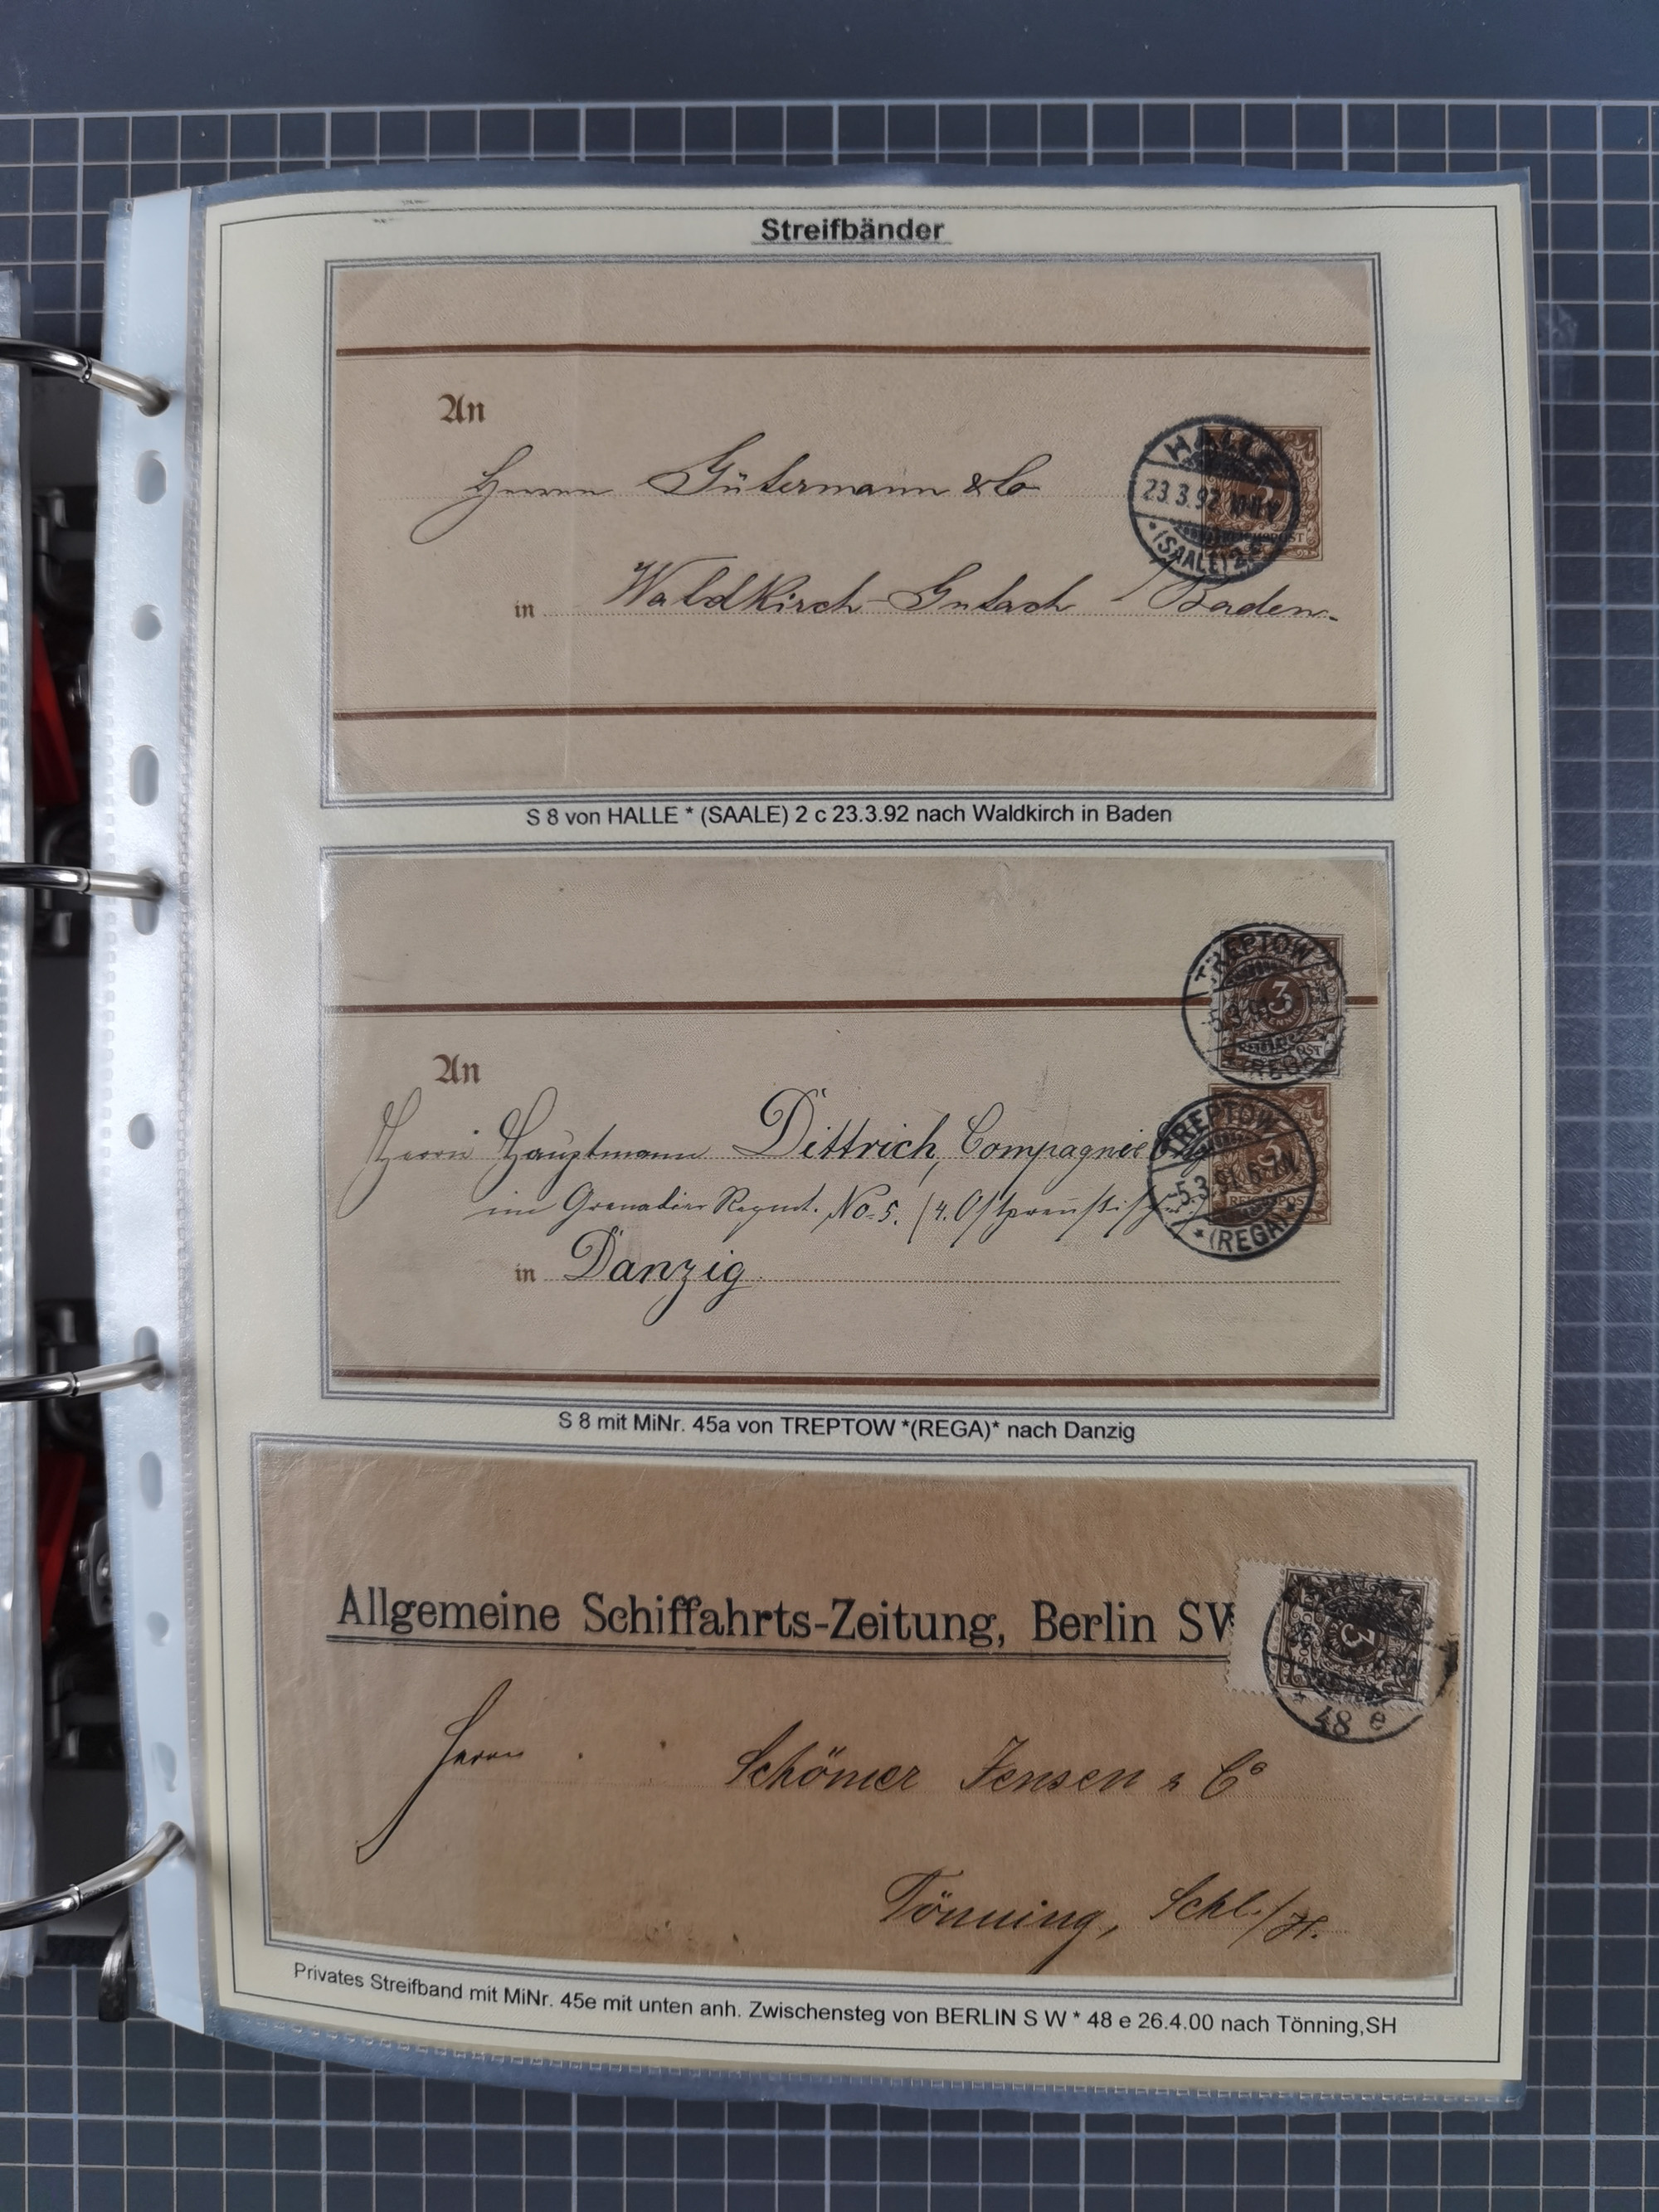 Streifbänder
An
Herren Gütermann & Co
in Waldkirch-Gutach / Baden.
HALLE
23.3.92 10-11V
*(SAALE) 2 c
REICHSPOST
S 8 von HALLE * (SAALE) 2 c 23.3.92 nach Waldkirch in Baden
TREPTOW
3
PFENNIG
REICHSPOST
(REGA)
An
Herrn Hauptmann Dittrich, Compagnie
im Grenadier Regmt. No. 5. (4. Ostpreußisches)
in Danzig
TREPTOW
5.3.91. 6-7N
REICHSPOST
*(REGA)*
S 8 mit MiNr. 45a von TREPTOW *(REGA)* nach Danzig
Allgemeine Schiffahrts-Zeitung, Berlin SW
3
* 48 e
Herrn Schömer Jensen & Co
Tönning, Schl./H.
Privates Streifband mit MiNr. 45e mit unten anh. Zwischensteg von BERLIN S W * 48 e 26.4.00 nach Tönning,SH